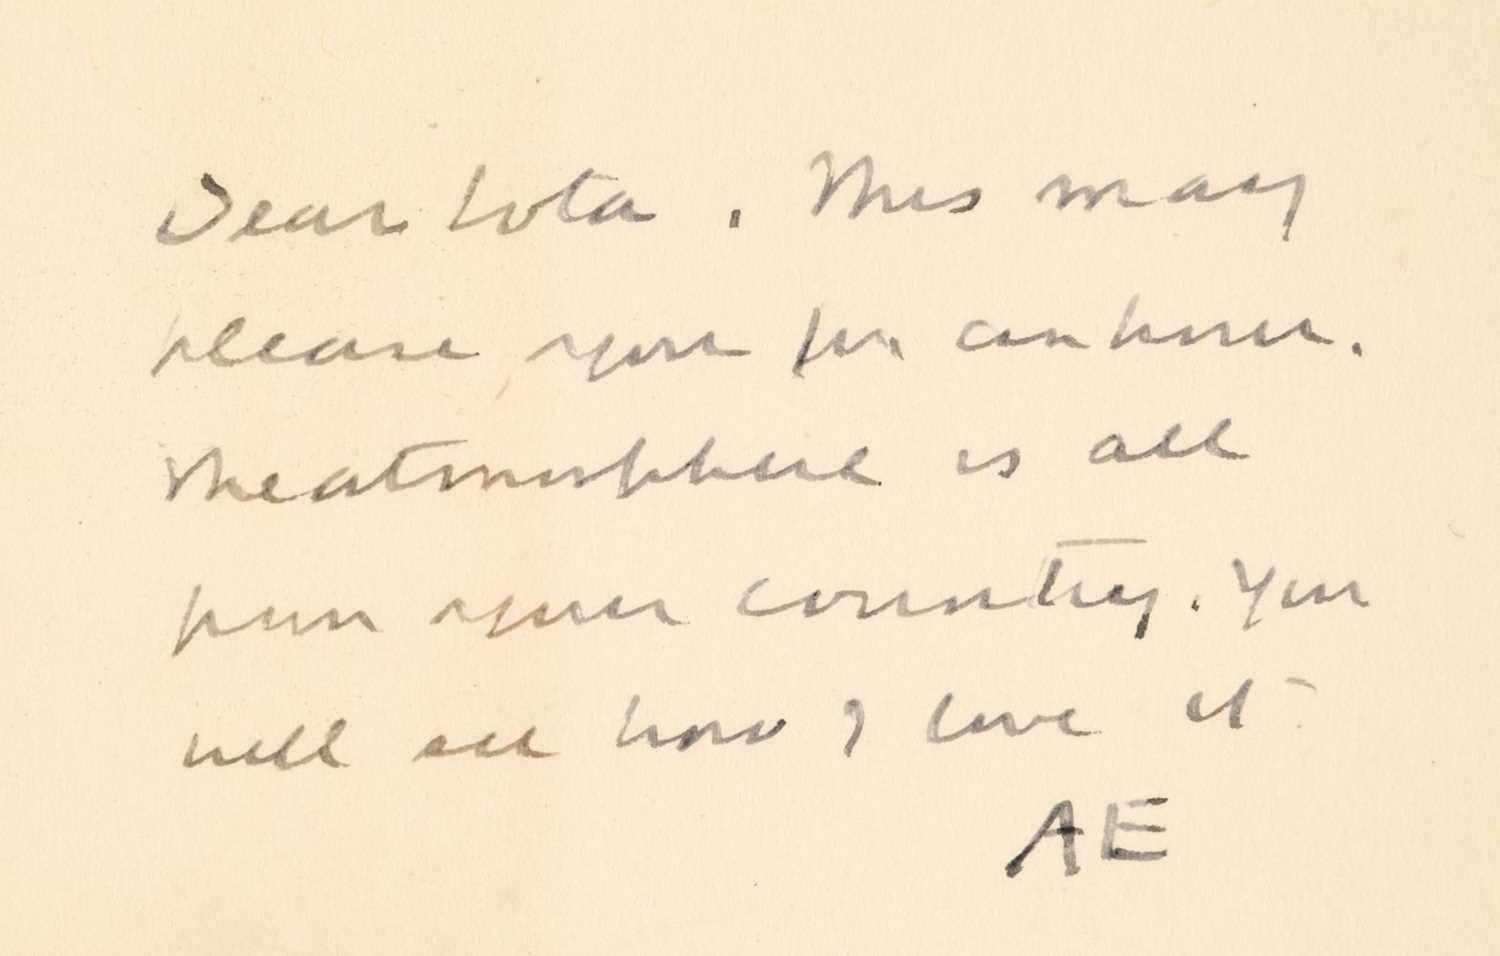 Dear Lota. This may
please you for an hour.
The atmosphere is all
from your country. You
will see how I love it
AE